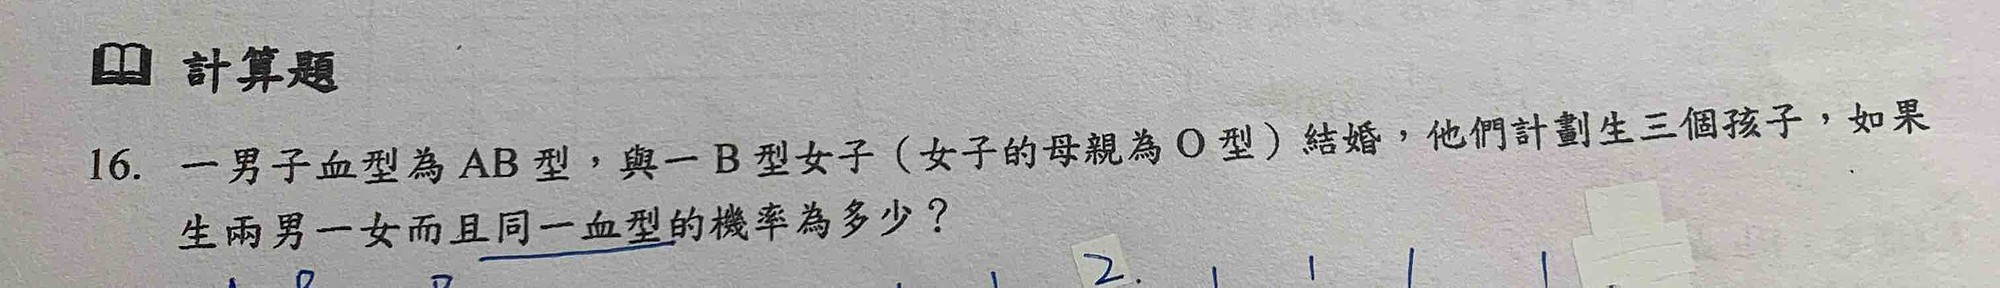 計算題
16. 一男子血型為 AB 型，與一 B 型女子（女子的母親為 O 型）結婚，他們計劃生三個孩子，如果
生兩男一女而且同一血型的機率為多少？
2.